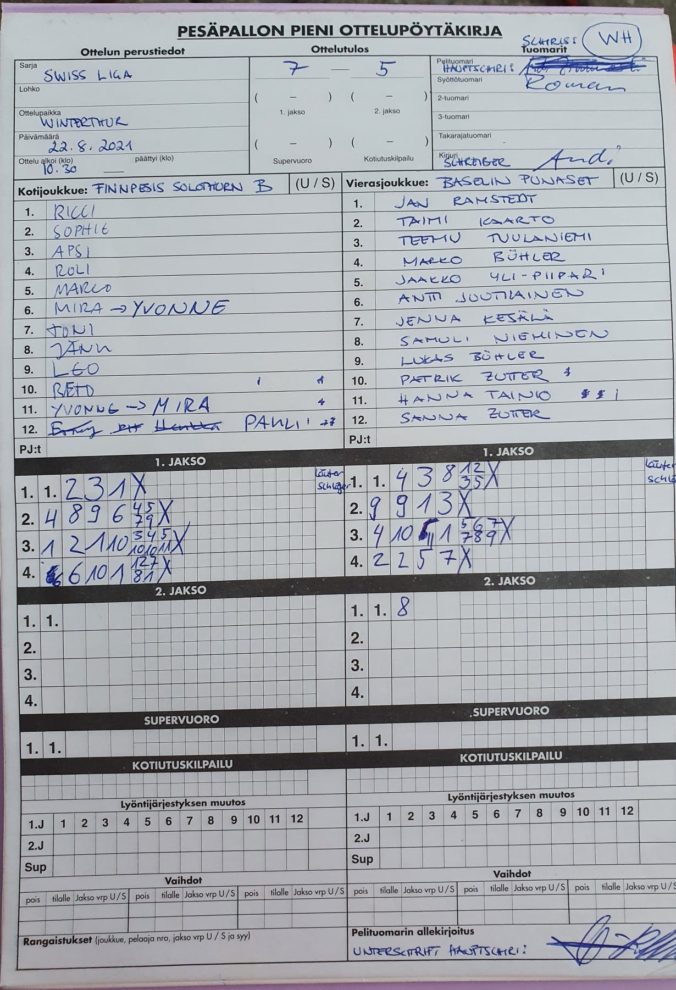 PESÄPALLON PIENI OTTELUPÖYTÄKIRJA
SCHIRIS: WH
Ottelun perustiedot
Ottelutulos
Tuomarit
Sarja SWISS LIGA
7 – 5
Pelituomari HAUPTSCHIRI:
Lohko
( – ) ( – )
Syöttötuomari Roman
1. jakso 2. jakso
2-tuomari
Ottelupaikka WINTERTHUR
3-tuomari
Päivämäärä 22.8.2021
( – ) ( – )
Takarajatuomari
Ottelu alkoi (klo) 10.30 päättyi (klo)
Supervuoro Kotiutuskilpailu
Kirjuri SCHREIBER Andi
Kotijoukkue: FINNPESIS SOLOTHURN B (U / S)
1. RICCI
2. SOPHIE
3. APSI
4. ROLI
5. MARCO
6. MIRA → YVONNE
7. TONI
8. JÄNU
9. LEO
10. RETO
11. YVONNE → MIRA
12. PAULI
PJ:t
Vierasjoukkue: BASELIN PUNASET (U / S)
1. JAN RAMSTEDT
2. TAIMI KAARTO
3. TEEMU TUULANIEMI
4. MARKO BÜHLER
5. JAAKKO YLI-PIIPARI
6. ANTTI JOUTLAINEN
7. JENNA KESÄLÄ
8. SAMULI NIEMINEN
9. LUKAS BÜHLER
10. PATRIK ZUTTER
11. HANNA TAINIO
12. SANNA ZUTTER
PJ:t
1. JAKSO
1. 1. 2 3 1 X
2. 4 8 9 6 45 79 X
3. 1 2 1 10 345 101011 X
4. 6 10 1 127 81 X
1. JAKSO
1. 1. 4 3 8 12 35 X
2. 9 9 1 3 X
3. 4 10 1 567 789 X
4. 2 2 5 7 X
2. JAKSO
1. 1.
2.
3.
4.
2. JAKSO
1. 1. 8
2.
3.
4.
SUPERVUORO
1. 1.
SUPERVUORO
1. 1.
KOTIUTUSKILPAILU
KOTIUTUSKILPAILU
Lyöntijärjestyksen muutos
1.J 1 2 3 4 5 6 7 8 9 10 11 12
2.J
Sup
Lyöntijärjestyksen muutos
1.J 1 2 3 4 5 6 7 8 9 10 11 12
2.J
Sup
Vaihdot
pois tilalle Jakso vrp U / S pois tilalle Jakso vrp U / S pois tilalle Jakso vrp U / S
Vaihdot
pois tilalle Jakso vrp U / S pois tilalle Jakso vrp U / S pois tilalle Jakso vrp U / S
Rangaistukset (joukkue, pelaaja nro, jakso vrp U / S ja syy)
Pelituomarin allekirjoitus
UNTERSCHRIFT HAUPTSCHIRI: